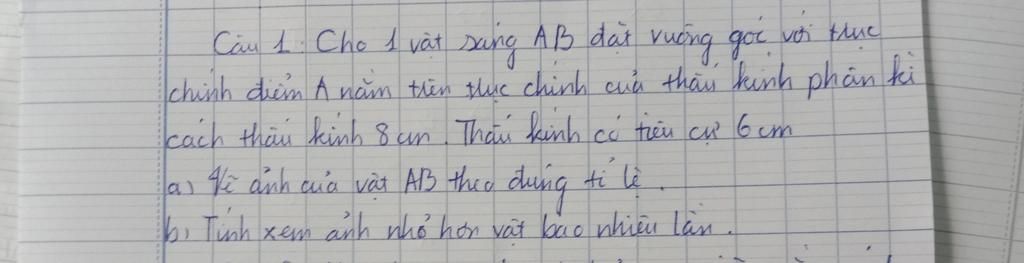 Câu 1. Cho 1 vật sáng AB đặt vuông góc với trục
chính điểm A nằm trên trục chính của thấu kính phân kì
cách thấu kính 8 cm. Thấu kính có tiêu cự 6 cm
a) Vẽ ảnh của vật AB theo đúng tỉ lệ.
b) Tính xem ảnh nhỏ hơn vật bao nhiêu lần.